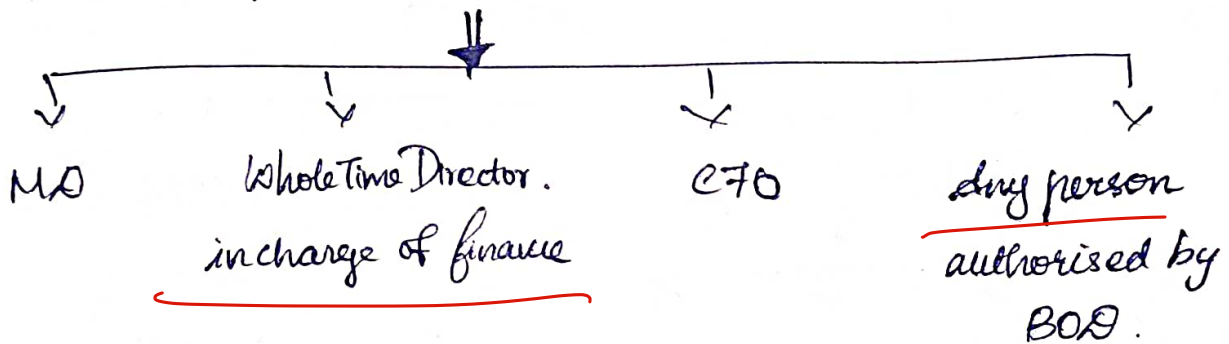 MD
Whole Time Director.
in charge of finance
CFO
Any person
authorised by
BOD.